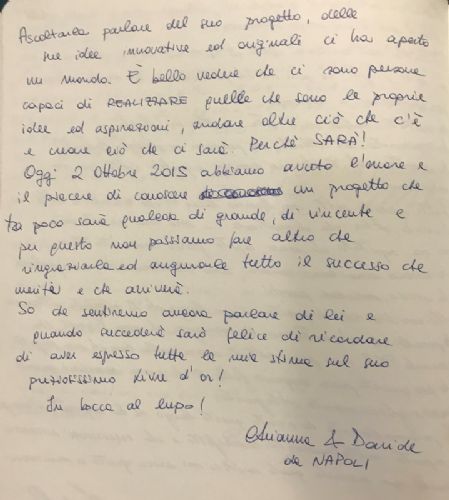 Ascoltarla parlare del suo progetto, delle
sue idee innovative ed originali ci ha aperto
un mondo. È bello vedere che ci sono persone
capaci di REALIZZARE quelle che sono le proprie
idee ed aspirazioni, andare oltre ciò che c'è
e creare ciò che ci sarà. Perchè SARÀ!
Oggi 2 Ottobre 2015 abbiamo avuto l'onore e
il piacere di conoscere un progetto che
tra poco sarà qualcosa di grande, di vincente e
per questo non possiamo fare altro che
ringraziarla ed augurarle tutto il successo che
merita e che arriverà.
So che sentiremo ancora parlare di lei e
quando succederà sarò felice di ricordare
di aver espresso tutta la mia stima sul suo
preziosissimo livre d'or!
In bocca al lupo!
Arianna & Davide
da NAPOLI